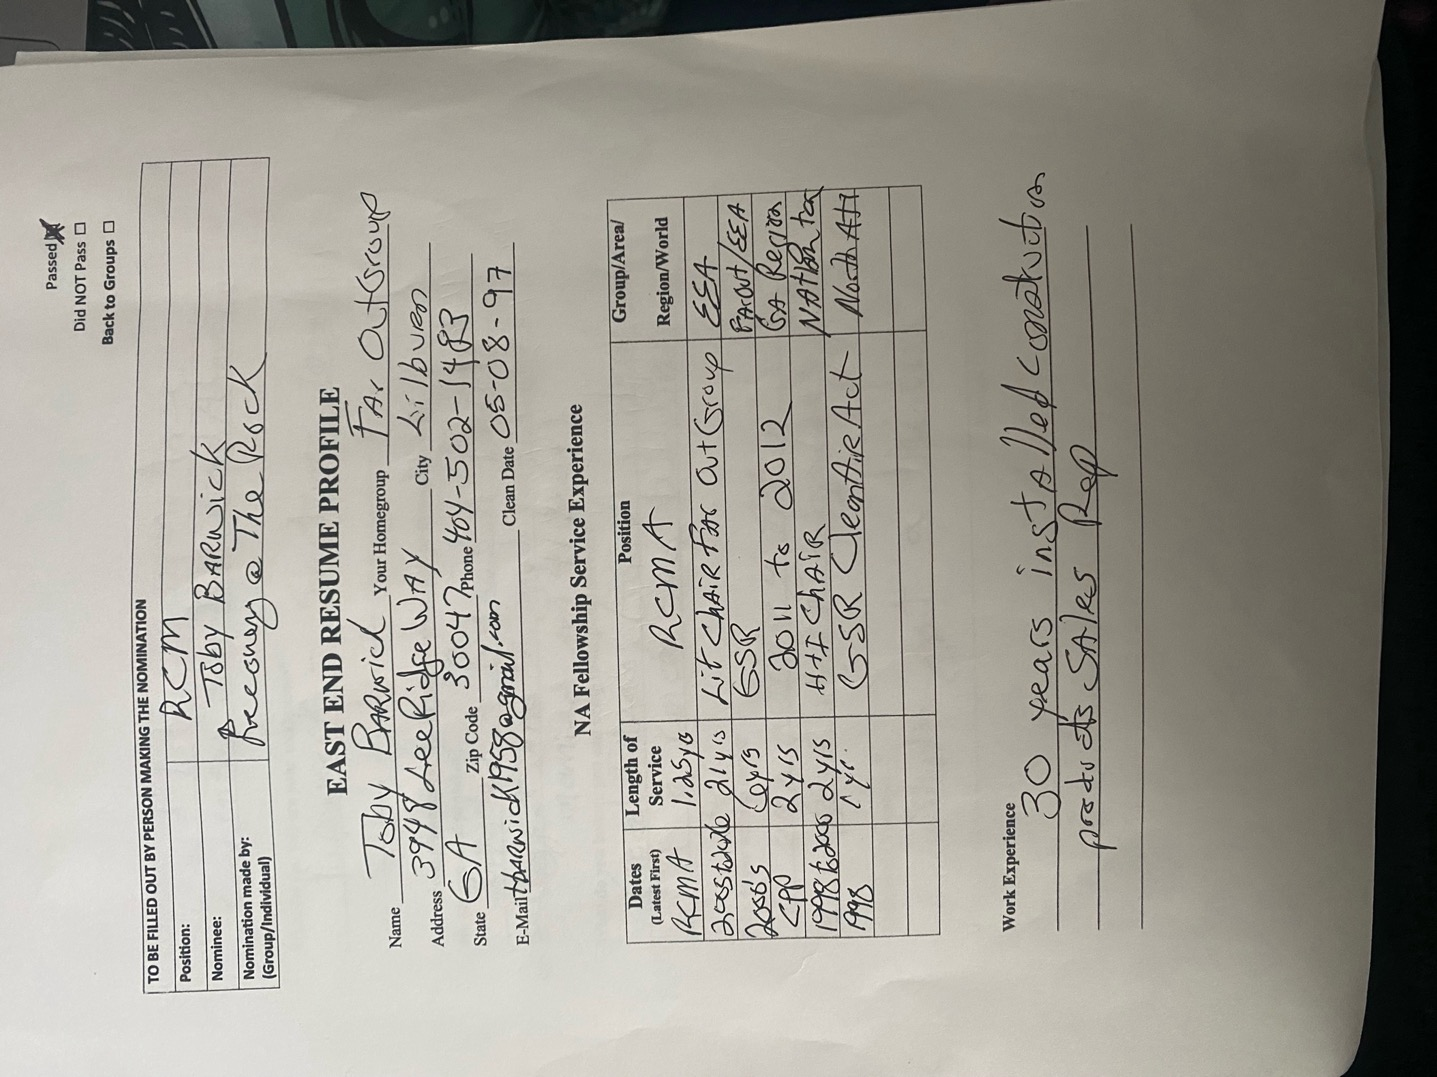 Passed ☒
Did NOT Pass ☐
Back to Groups ☐
TO BE FILLED OUT BY PERSON MAKING THE NOMINATION
Position: RCM
Nominee: Toby BARwick
Nomination made by: Recovery @ The Rock
(Group/Individual)
EAST END RESUME PROFILE
Name Toby BARwick Your Homegroup FAr Out Group
Address 3948 Lee Ridge WAY City Lilburn
State GA Zip Code 30047 Phone 404-502-1483
E-Mail tbarwick1958@gmail.com Clean Date 05-08-97
NA Fellowship Service Experience
Dates Length of Position Group/Area/
(Latest First) Service Region/World
RCMA 1.25 yrs RCMA EEA
2 yrs Lit ChAIR FAr Out Group FArOut/EEA
2000's GSR GA Region
CPP 2 yrs 2011 to 2012
1998 to 2000 2 yrs H+I ChAIR
1998 1 yr. GSR CleanAiR Act North Atl
Work Experience 30 years instAlled construction
products SAles Rep